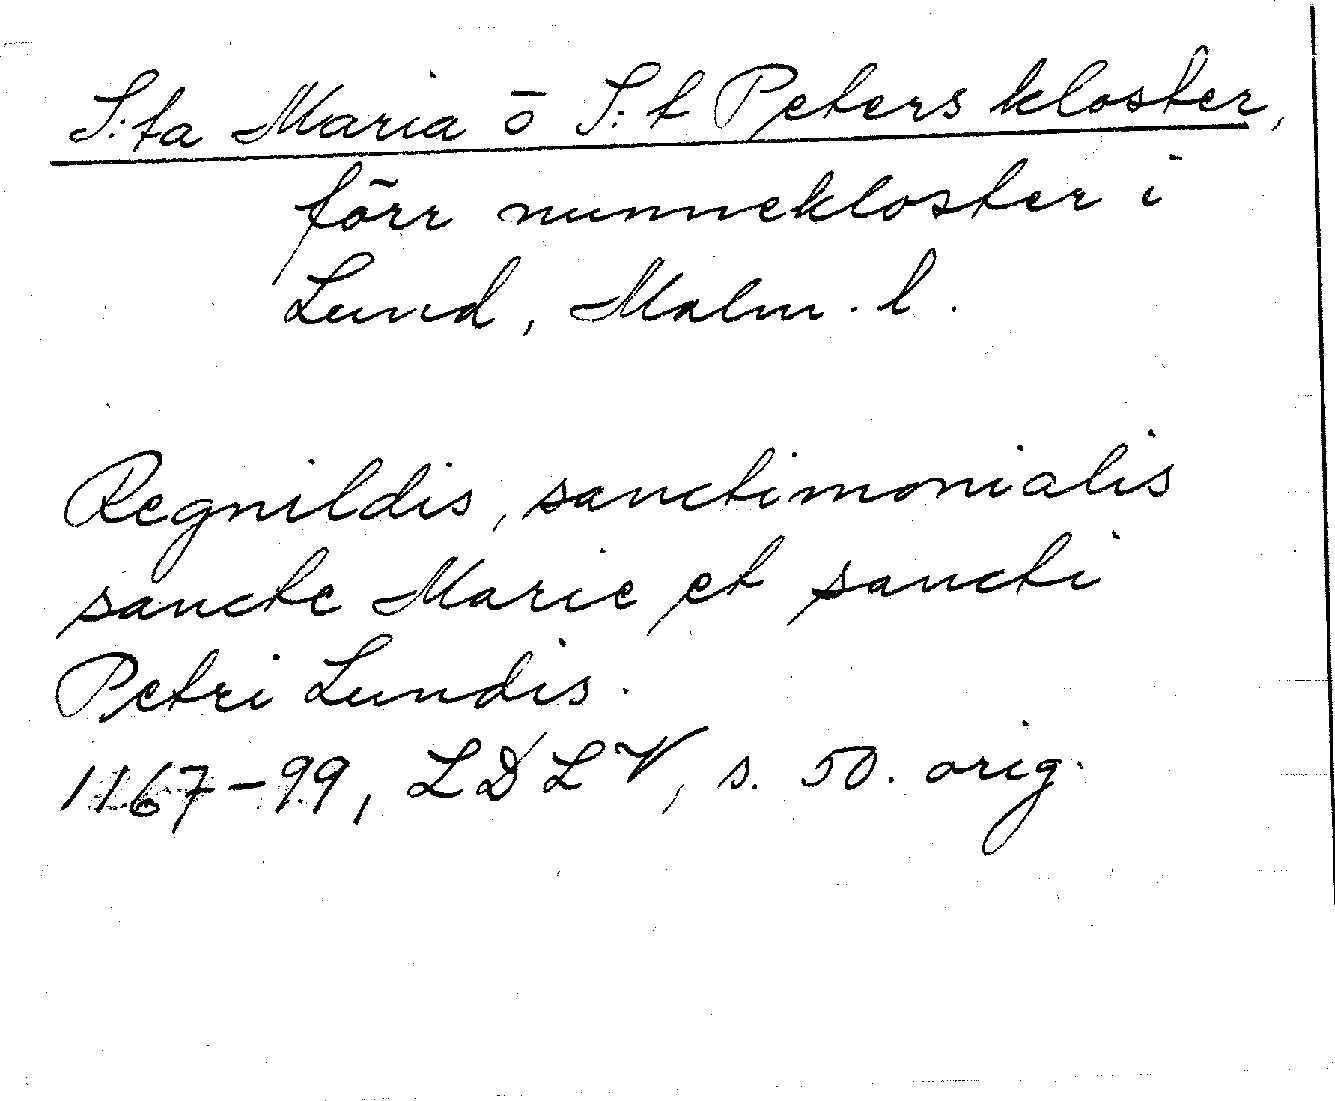 S:ta Maria o S:t Peters kloster,
förr nunnekloster i
Lund, Malm. l.
Regnildis, sanctimonialis
sancte Marie et sancti
Petri Lundis.
1167-99, LDLV, s. 50. orig.